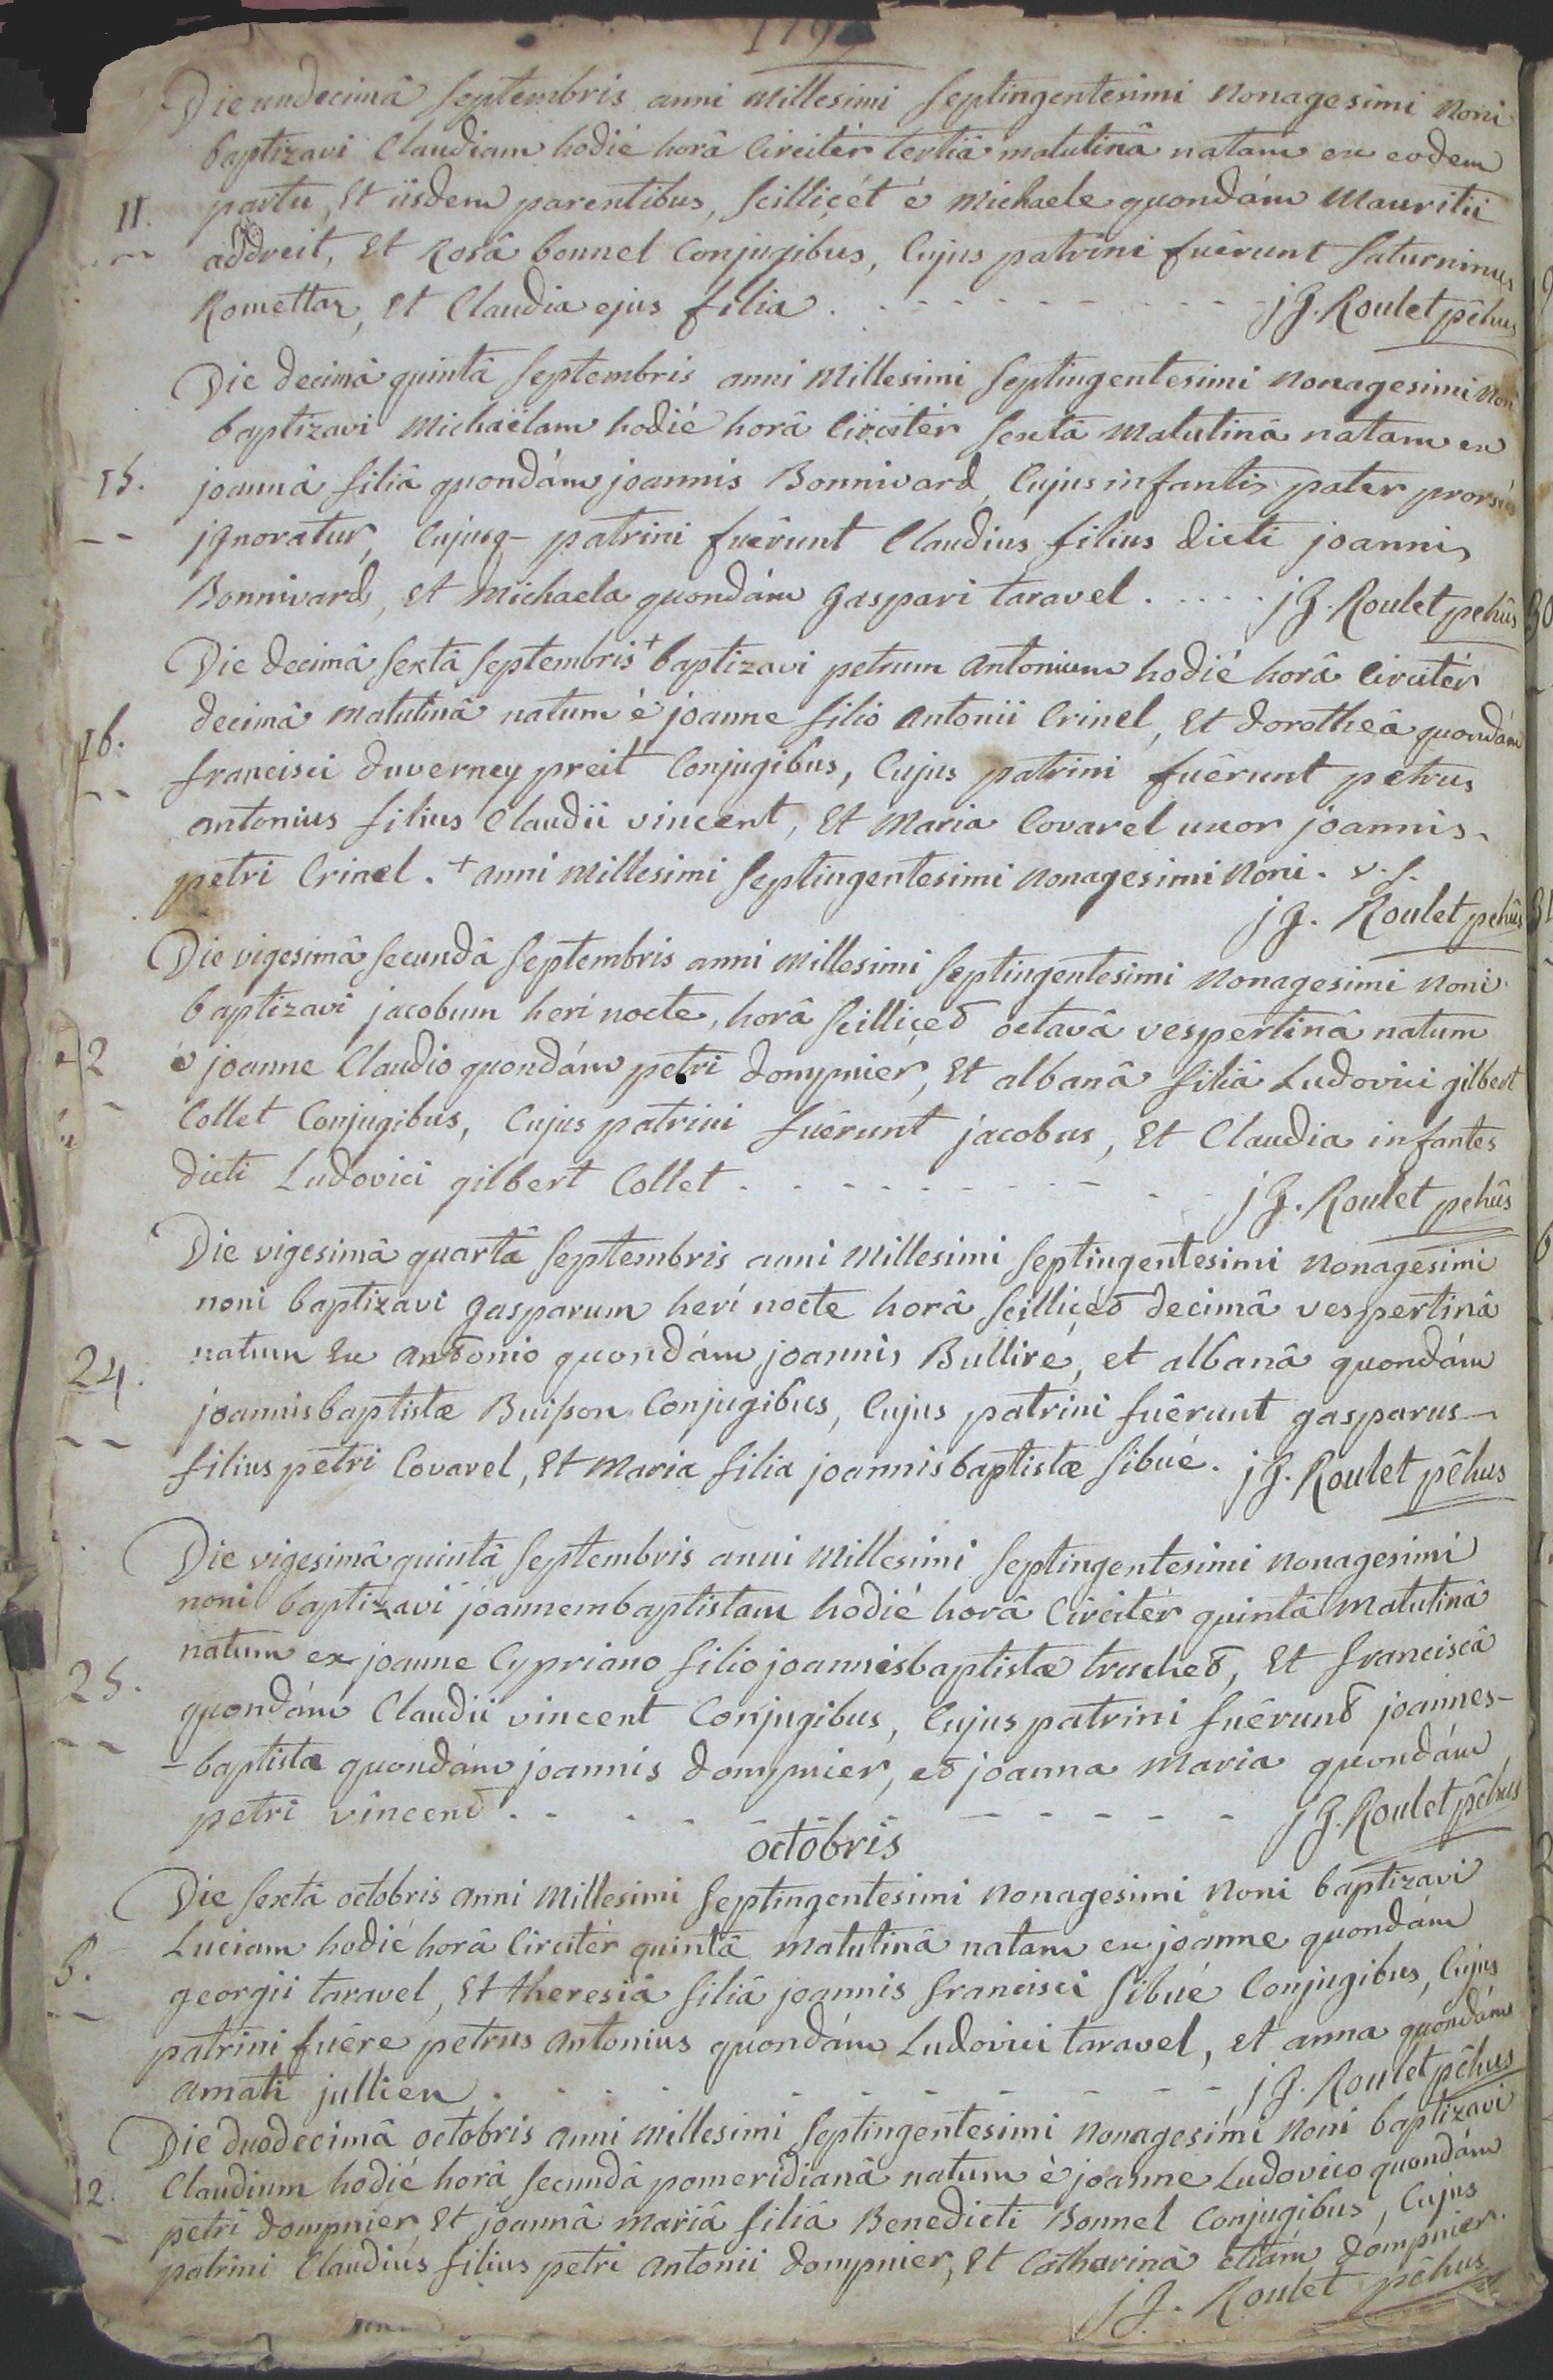 179
Die undecimâ Septembris anni Millesimi Septingentesimi Nonagesimi Noni
baptizavi Claudiam hodié horâ Circitér tertiâ matutinâ natam ex eodem
11. partu, Et iisdem parentibus, Scilliçét é Michaele quondám Mauritii
addreit, Et Rosâ bonnel Conjugibus, Cujus patrini fuêrunt Saturninus
Romettaz, Et Claudia ejus filia. - - - - - - - - - - j J. Roulet pêhus
Die decimâ quintâ Septembris anni Millesimi Septingentesimi Nonagesimi Noni
baptizavi Michaëlam hodié horâ Circitér Sextâ Matutinâ natam ex
15. joannâ filiâ quondám joannis Bonnivard, Cujus infantis pater prorsús
jgnoratur, Cujusq- patrini fuêrunt Claudius filius dicti joannis
Bonnivard, et Michaela quondám Gaspari taravel . . . . . j J. Roulet pehûs
Die decimâ Sextâ Septembris + baptizavi petrum Antonium hodié horâ Circitér
decimâ Matutinâ natum é joanne filio Antonii Crinel, Et dorotheâ quondám
16. francisci duverney preit Conjugibus, Cujus patrini fuêrunt petrus
antonius filius Claudii vincent, Et Maria Covarel uxor joannis-
petri Crinel. + anni Millesimi Septingentesimi Nonagesimi Noni. v. s.
j J. Roulet pehûs
Die vigesimâ Secundâ Septembris anni Millesimi Septingentesimi Nonagesimi Noni
baptizavi jacobum herí nocte, horâ Scilliçet octavâ vespertinâ natum
22 é joanne Claudio quondám petri dompnier, Et albanâ filiâ Ludovici gilbert
Collet Conjugibus, Cujus patrini fuêrunt jacobus, Et Claudia infantes
dicti Ludovici gilbert Collet . - - - - - - - - - j J. Roulet pehûs
Die vigesimâ quartâ Septembris anni Millesimi Septingentesimi Nonagesimi
noni baptizavi Gasparum herí nocte horâ Scilliçet decimâ vespertinâ
24. natum Ex antonio quondám joannis Bulliré, et albanâ quondám
joannisbaptistæ Buisson Conjugibus, Cujus patrini fuêrunt gasparus
filius petri Covarel, Et Maria filia joannisbaptistæ Sibué. j J. Roulet pêhus
Die vigesimâ quintâ Septembris anni Millesimi Septingentesimi Nonagesimi
noni baptizavi joannembaptistam hodié horâ Circitér quintâ Matutinâ
25. natum ex joanne Cypriano filio joannisbaptistæ truchet, Et franciscâ
quondám Claudii vincent Conjugibus, Cujus patrini fuêrunt joannes-
-baptista quondám joannis dompnier, et joanna Maria quondám
petri vincent . - - - - - - - - j J. Roulet pêhus
octobris
Die Sextâ octobris anni Millesimi Septingentesimi Nonagesimi Noni baptizavi
Luciam hodié horâ Circitér quintâ Matutinâ natam ex joanne quondám
6. georgii taravel, Et theresiâ filiâ joannis francisci Sibué Conjugibus, Cujus
patrini fuêre petrus Antonius quondám Ludovici taravel, et anna quondám
amati jullien . - - - - - - - - - - j J. Roulet pêhus
Die duodecimâ octobris anni Millesimi Septingentesimi Nonagesimi Noni baptizavi
12. Claudium hodié horâ Secundâ pomeridianâ natum é joanne Ludovico quondám
petri dompnier, Et joannâ Mariâ filiâ Benedicti Bonnel Conjugibus, Cujus
patrini Claudius filius petri Antonii dompnier, Et Catharina etiám dompnier.
j J. Roulet pêhus